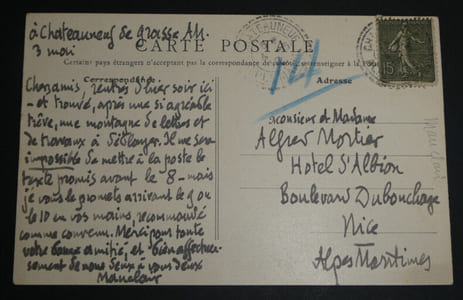 à Chateauneuf de Grasse AM.
3 mai
CARTE POSTALE
Certains pays étrangers n'acceptant pas la correspondance de côté, se renseigner à la Poste
Correspondance
Adresse
Chers amis, rentrés d'hier soir ici
- et trouvé, après une si agréable
trêve, une montagne de lettres et
de travaux à Il me sera
impossible de mettre à la poste le
texte promis avant le 8 - mais
je vous le promets arrivant le 9 ou
le 10 en vos mains, recommandé
comme convenu. Merci pour toute
votre bonne amitié, et bien affectueu-
sement de nous deux à vous deux
Mauclair
Monsieur et Madame
Alfred Mortier
Hotel d'Albion
Boulevard Dubouchage
Nice
Alpes Maritimes
15
Mauclair